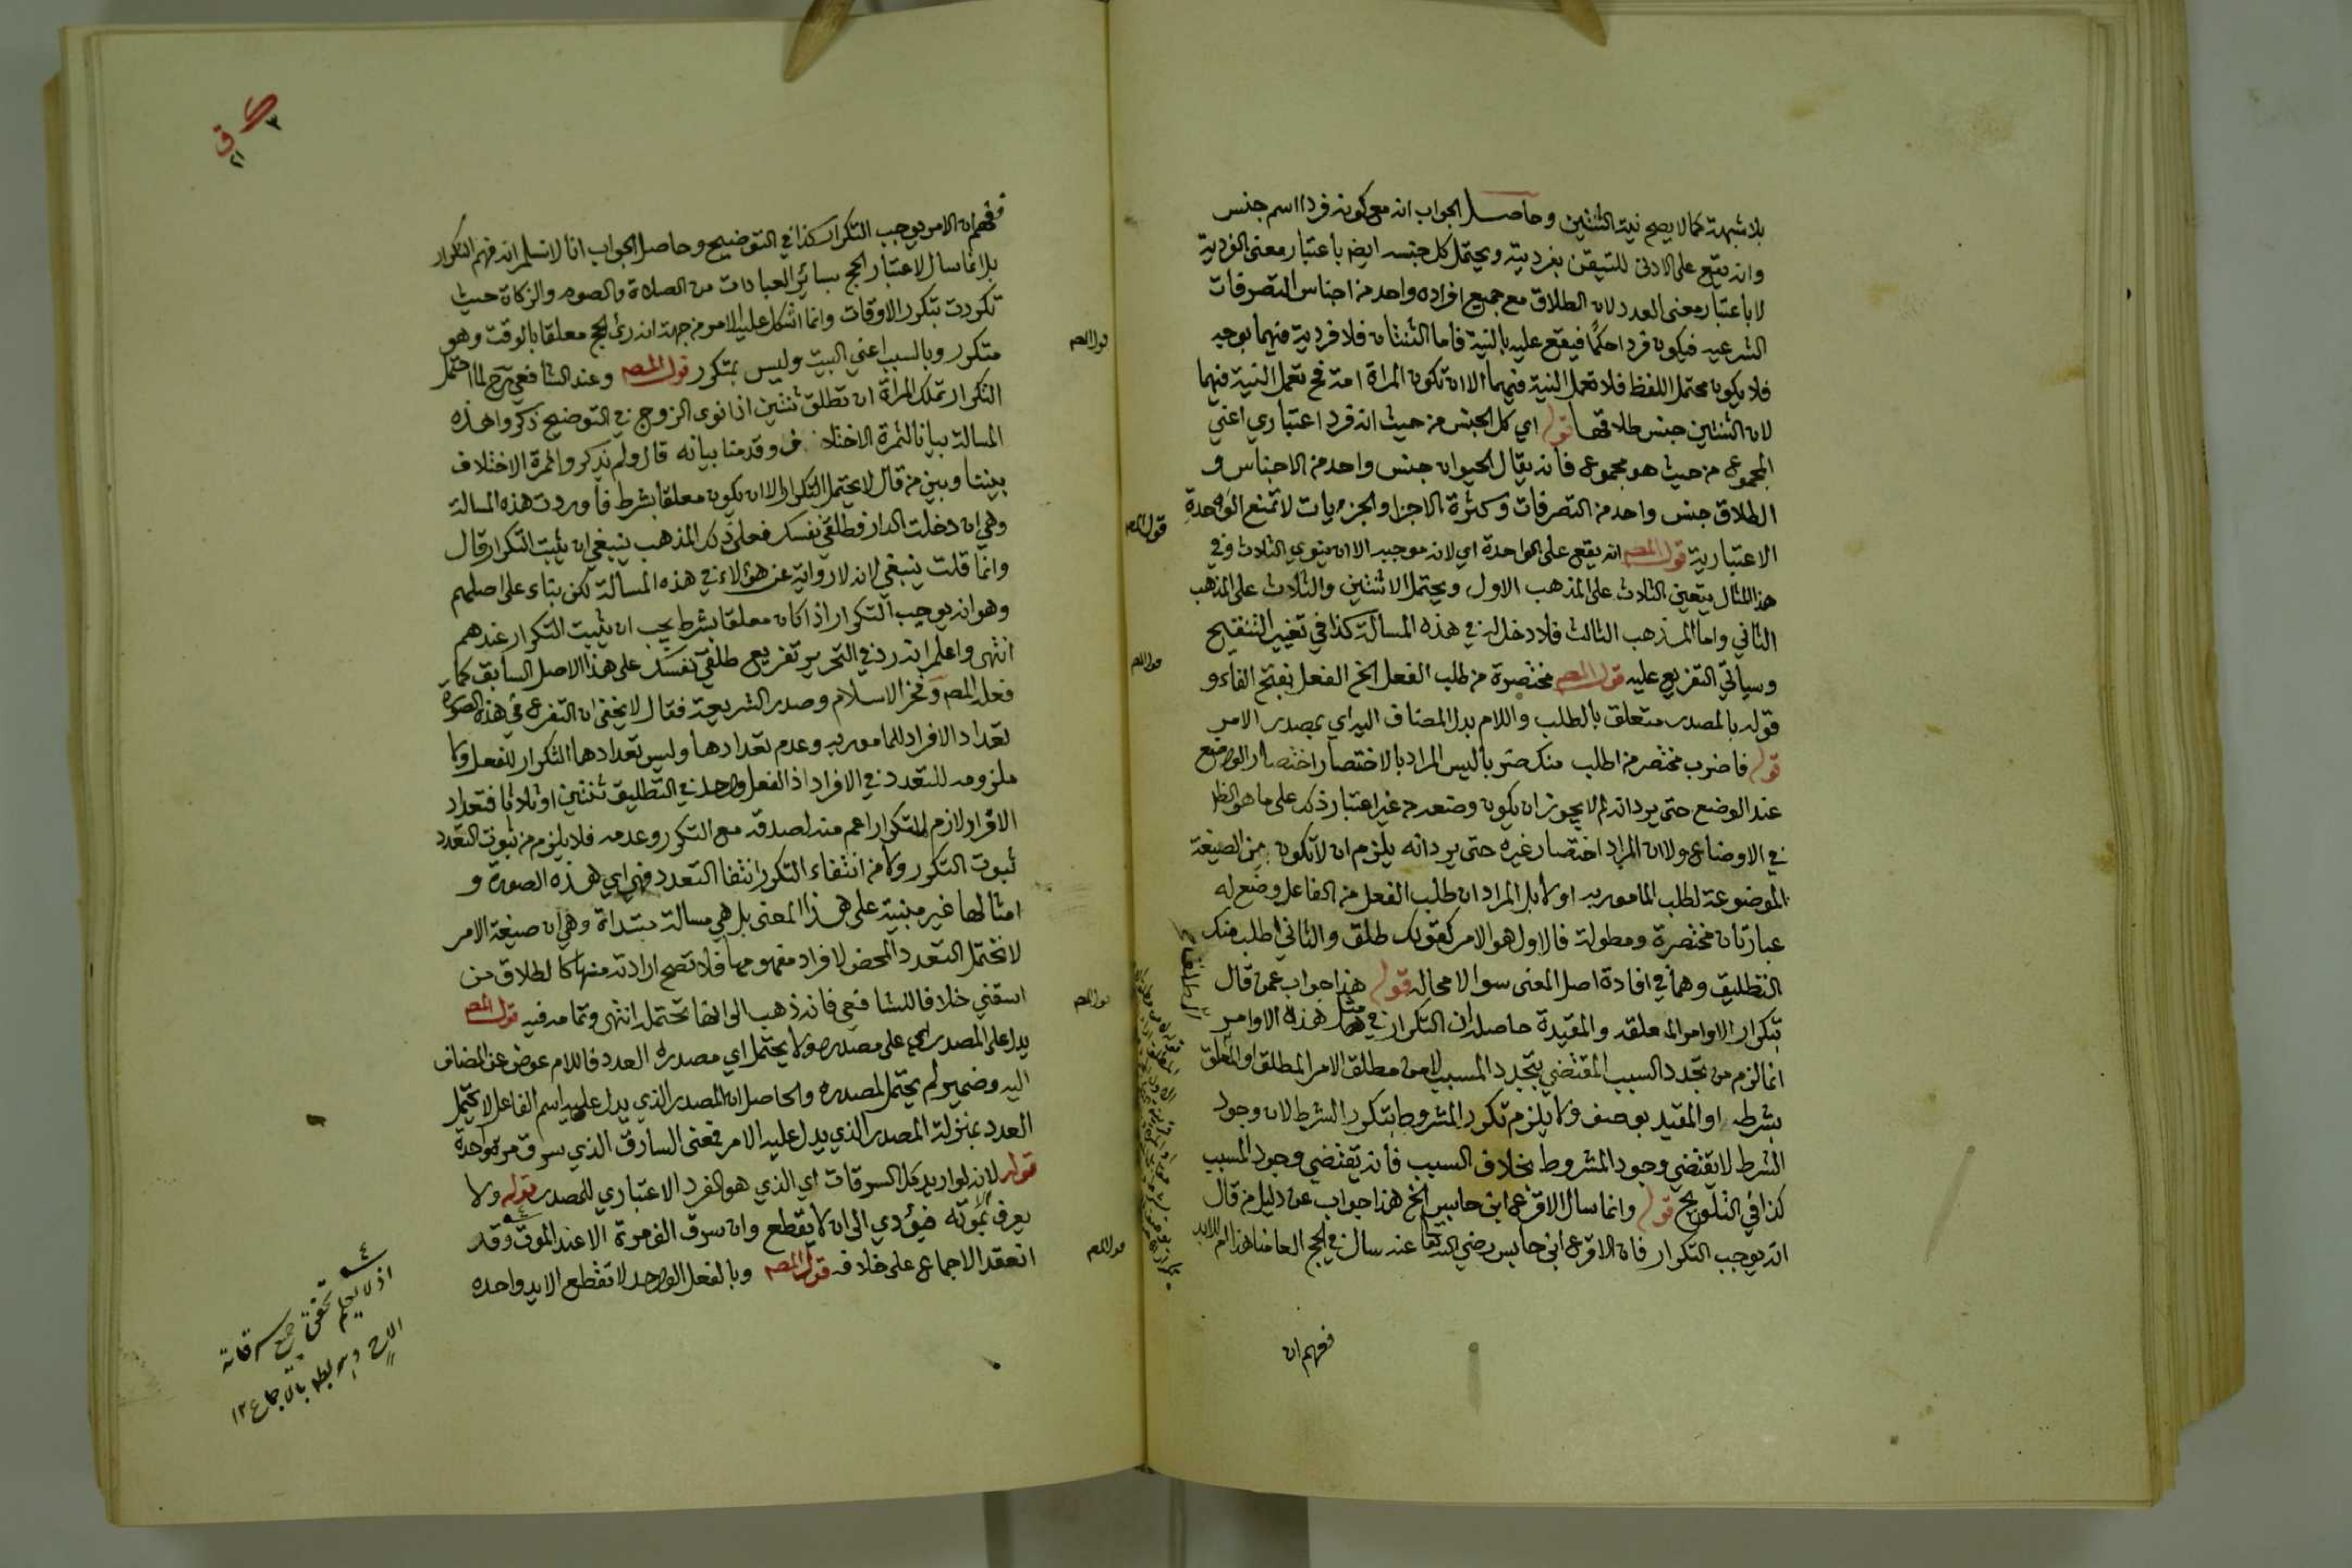 بلا شبهة كما لا يصح نية الثنتين وحاصل الجواب انه مع كونه فردا اسم جنس
وانه يقع على الادنى للتيقن بفرديته ويحتمل كل جنسه ايض باعتبار معنى الفردية
لا باعتبار معنى العدد لان الطلاق مع جميع افراده واحد من اجناس التصرفات
الشرعيه فيكون فردا حكمًا فيقع عليه بالنية فاما الثنتان فلا فردية فيهما بوجه
فلا يكون محتمل اللفظ فلا تعمل النية فيهما الا ان تكون المراة امة فح تعمل النية فيهما
لان الثنتين جنس طلاقها قوله اي كل الجنس من حيث انه فرد اعتباري اعني
المجموع من حيث هو مجموع فانه يقال الحيوان جنس واحد من الاجناس و
الطلاق جنس واحد من التصرفات وكثرة الاجزا والجزءيات لا تمنع الوحدة
الاعتبارية قول المص انه يقع على الواحدة اي لانه موجبه الا ان ينوي الثلاث وفي
هذا المثال يتعين الثلاث على المذهب الاول ويحتمل الاثنتين والثلاث على المذهب
الثاني واما المذهب الثالث فلا دخل له في هذه المسالة كذا في تغيير التنقيح
وسياتي التفريع عليه قول المص مختصرة من طلب الفعل الخ الفعل بفتح الفاء و
قوله بالمصدر متعلق بالطلب واللام بدل المضاف اليه اي بمصدر الامر
قوله فاضرب مختصر من اطلب منك ضربا ليس المراد بالاختصار اختصار الواضع
عند الوضع حتى يرد انه لم لا يجوز ان يكون وضعه من غير اعتبار ذلك على ما هو الظ
في الاوضاع ولا ان المراد اختصار غيره حتى يرد انه يلزم ان لا تكون من الصيغة
الموضوعة لطلب المامور به اولا بل المراد ان طلب الفعل من الفاعل وضع له
عبارتان مختصرة ومطولة فالاول هو الامر كقولك طلق والثاني اطلب منك
التطليق وهما في افادة اصل المعنى سوا لا محالة قوله هذا جواب عمن قال
بتكرار الاوامر المعلقه والمقيدة حاصله ان التكرار في مثل هذه الاوامر
انما لزم من تجدد السبب المقتضي بتجدد المسبب لا من مطلق الامر المطلق او المعلق
بشرط او المقيد بوصف ولا يلزم تكرر المشروط بتكرر الشرط لان وجود
الشرط لا يقتضي وجود المشروط بخلاف السبب فانه يقتضي وجود المسبب
كذا في التلويح قوله وانما سال الاقرع ابن حابس الخ هذا جواب عن دليل من قال
انه يوجب التكرار فان الاقرع ابن حابس رضي الله تعالى عنه سال في الحج العامنا هذا ام للابد
ففهم ان
قول المص
قول المص
قول المص
ففهم ان الامر يوجب التكرار كذا في التوضيح وحاصل الجواب انا لا نسلم انه فهم التكرار
بل انما سال لاعتبار الحج بسائر العبادات من الصلاة والصوم والزكاة حيث
تكررت بتكرر الاوقات وانما اشكل عليه الامر من جهة انه رئ الحج معلقا بالوقت وهو
متكرر وبالسبب اعني البيت وليس بمتكرر قول المص وعند الشافعي رح لما احتمل
التكرار تملك المراة ان تطلق ثنتين اذا نوى الزوج في التوضيح ذكروا هذه
المسالة بيانا لثمرة الاختلاف وقدمنا بيانه قال ولم نذكروا ثمرة الاختلاف
بيننا وبين من قال لا يحتمل التكرار الا ان يكون معلقا بشرط فاوردت هذه المسالة
وهي ان دخلت الدار فطلقي نفسك فعلى ذلك المذهب ينبغي ان يثبت التكرار قال
وانما قلت ينبغي لانه لا رواية عن هؤلاء في هذه المسالة لكن بناء على اصلهم
وهو انه يوجب التكرار اذا كان معلقا بشرط يجب ان يثبت التكرار عندهم
انتهى واعلم انه رد في التحرير تفريع طلقي نفسك على هذا الاصل السابق كما
فعله المص وفخر الاسلام وصدر الشريعة فقال لا يخفى ان التفرع في هذه الصورة
تعداد الافراد للمامور به وعدم تعدادها وليس تعدادها التكرار للفعل ولا
ملزومه للتعدد في الافراد اذ الفعل واحد في التطليق ثنتين او ثلاثا فتعداد
الافراد لازم للتكرار اعم منه لصدقه مع التكرر وعدمه فلا يلزم من ثبوت التعدد
ثبوت التكرر ولا من انتفاء التكرر انتفا التعدد فهي اي هذه الصورة و
امثالها غير مبنية على هذا المعنى بل هي مسالة مبتداة وهي ان صيغة الامر
لا تحتمل التعدد المحض لافراد مفهومها فلا تصح ارادته منها كالطلاق من
اسقني خلافا للشافعي فانه ذهب الى انها تحتمله انتهى وتمامه فيه قول المص
يدل على المصدر اي على مصدره ولا يحتمل اي مصدره العدد فاللام عوض عن المضاف
اليه وضمير لم يحتمل لمصدره والحاصل ان المصدر الذي يدل عليه اسم الفاعل لا يحتمل
العدد بمنزلة المصدر الذي يدل عليه الامر فمعنى السارق الذي سرق مرة واحدة
قوله لانه لو اريد كل السرقات اي الذي هو الفرد الاعتباري للمصدر قوله ولا
يعرف بموته فيؤدي الى ان لا يقطع وان سرق الف مرة الا عند الموت وقد
انعقد الاجماع على خلافه قول المص وبالفعل الواحد لا تقطع الا يد واحده
قول المص
قول المص
اذ لا يعلم تحقق جميع سرقاته